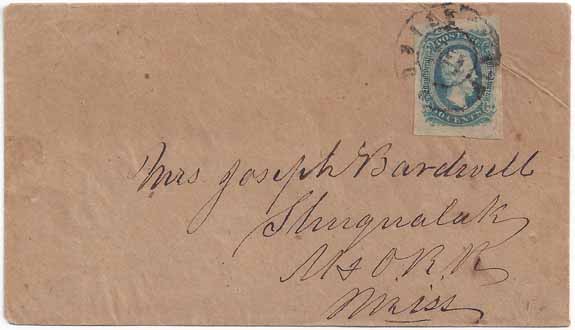 POSTAGE
CENTS
Mrs Joseph Bardwell
Shuqualak
M & O. R. R.
Miss